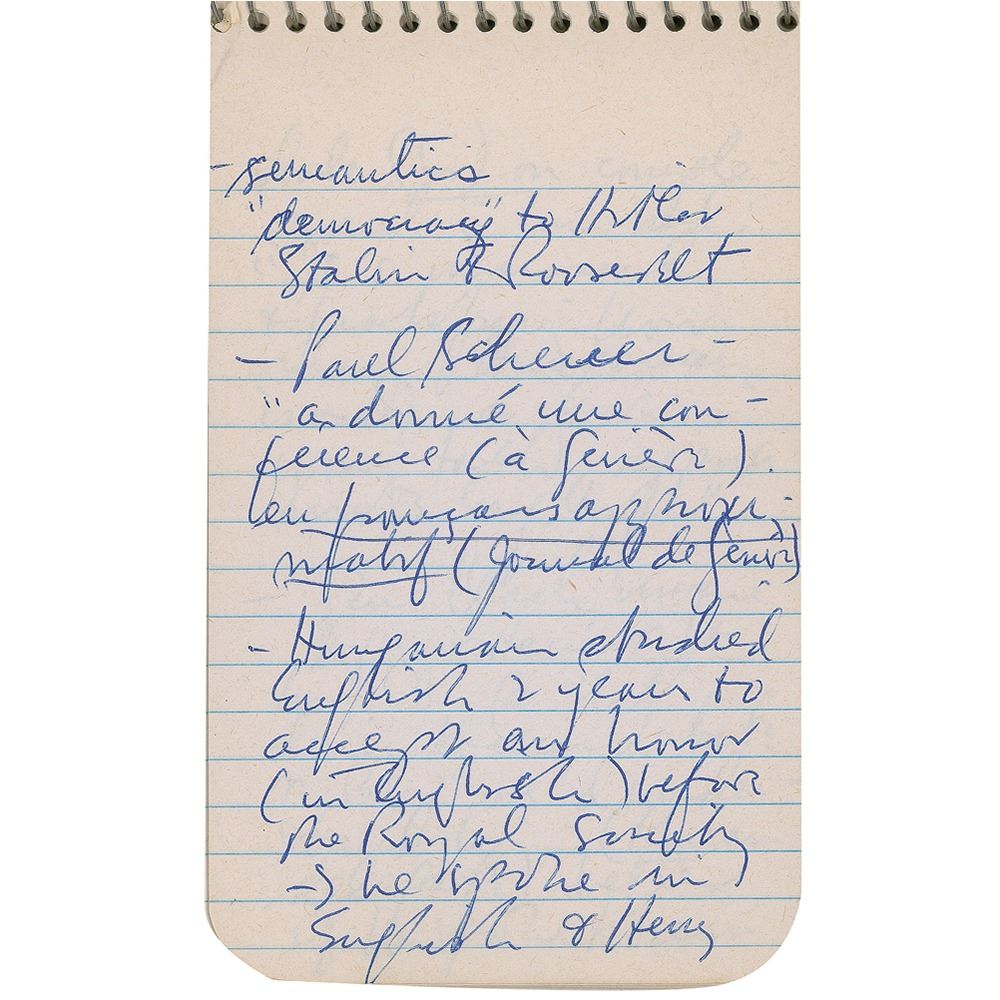 - semantics
"democracy" to Hitler
Stalin & Roosevelt
- Paul Scherrer -
"a donné une con-
férence (à Genève).
en français approxi-
matif (Journal de Genève)
- Hungarian studied
English 2 years to
accept an honor
(in English) before
the Royal Society
-> he spoke in
English & Henry